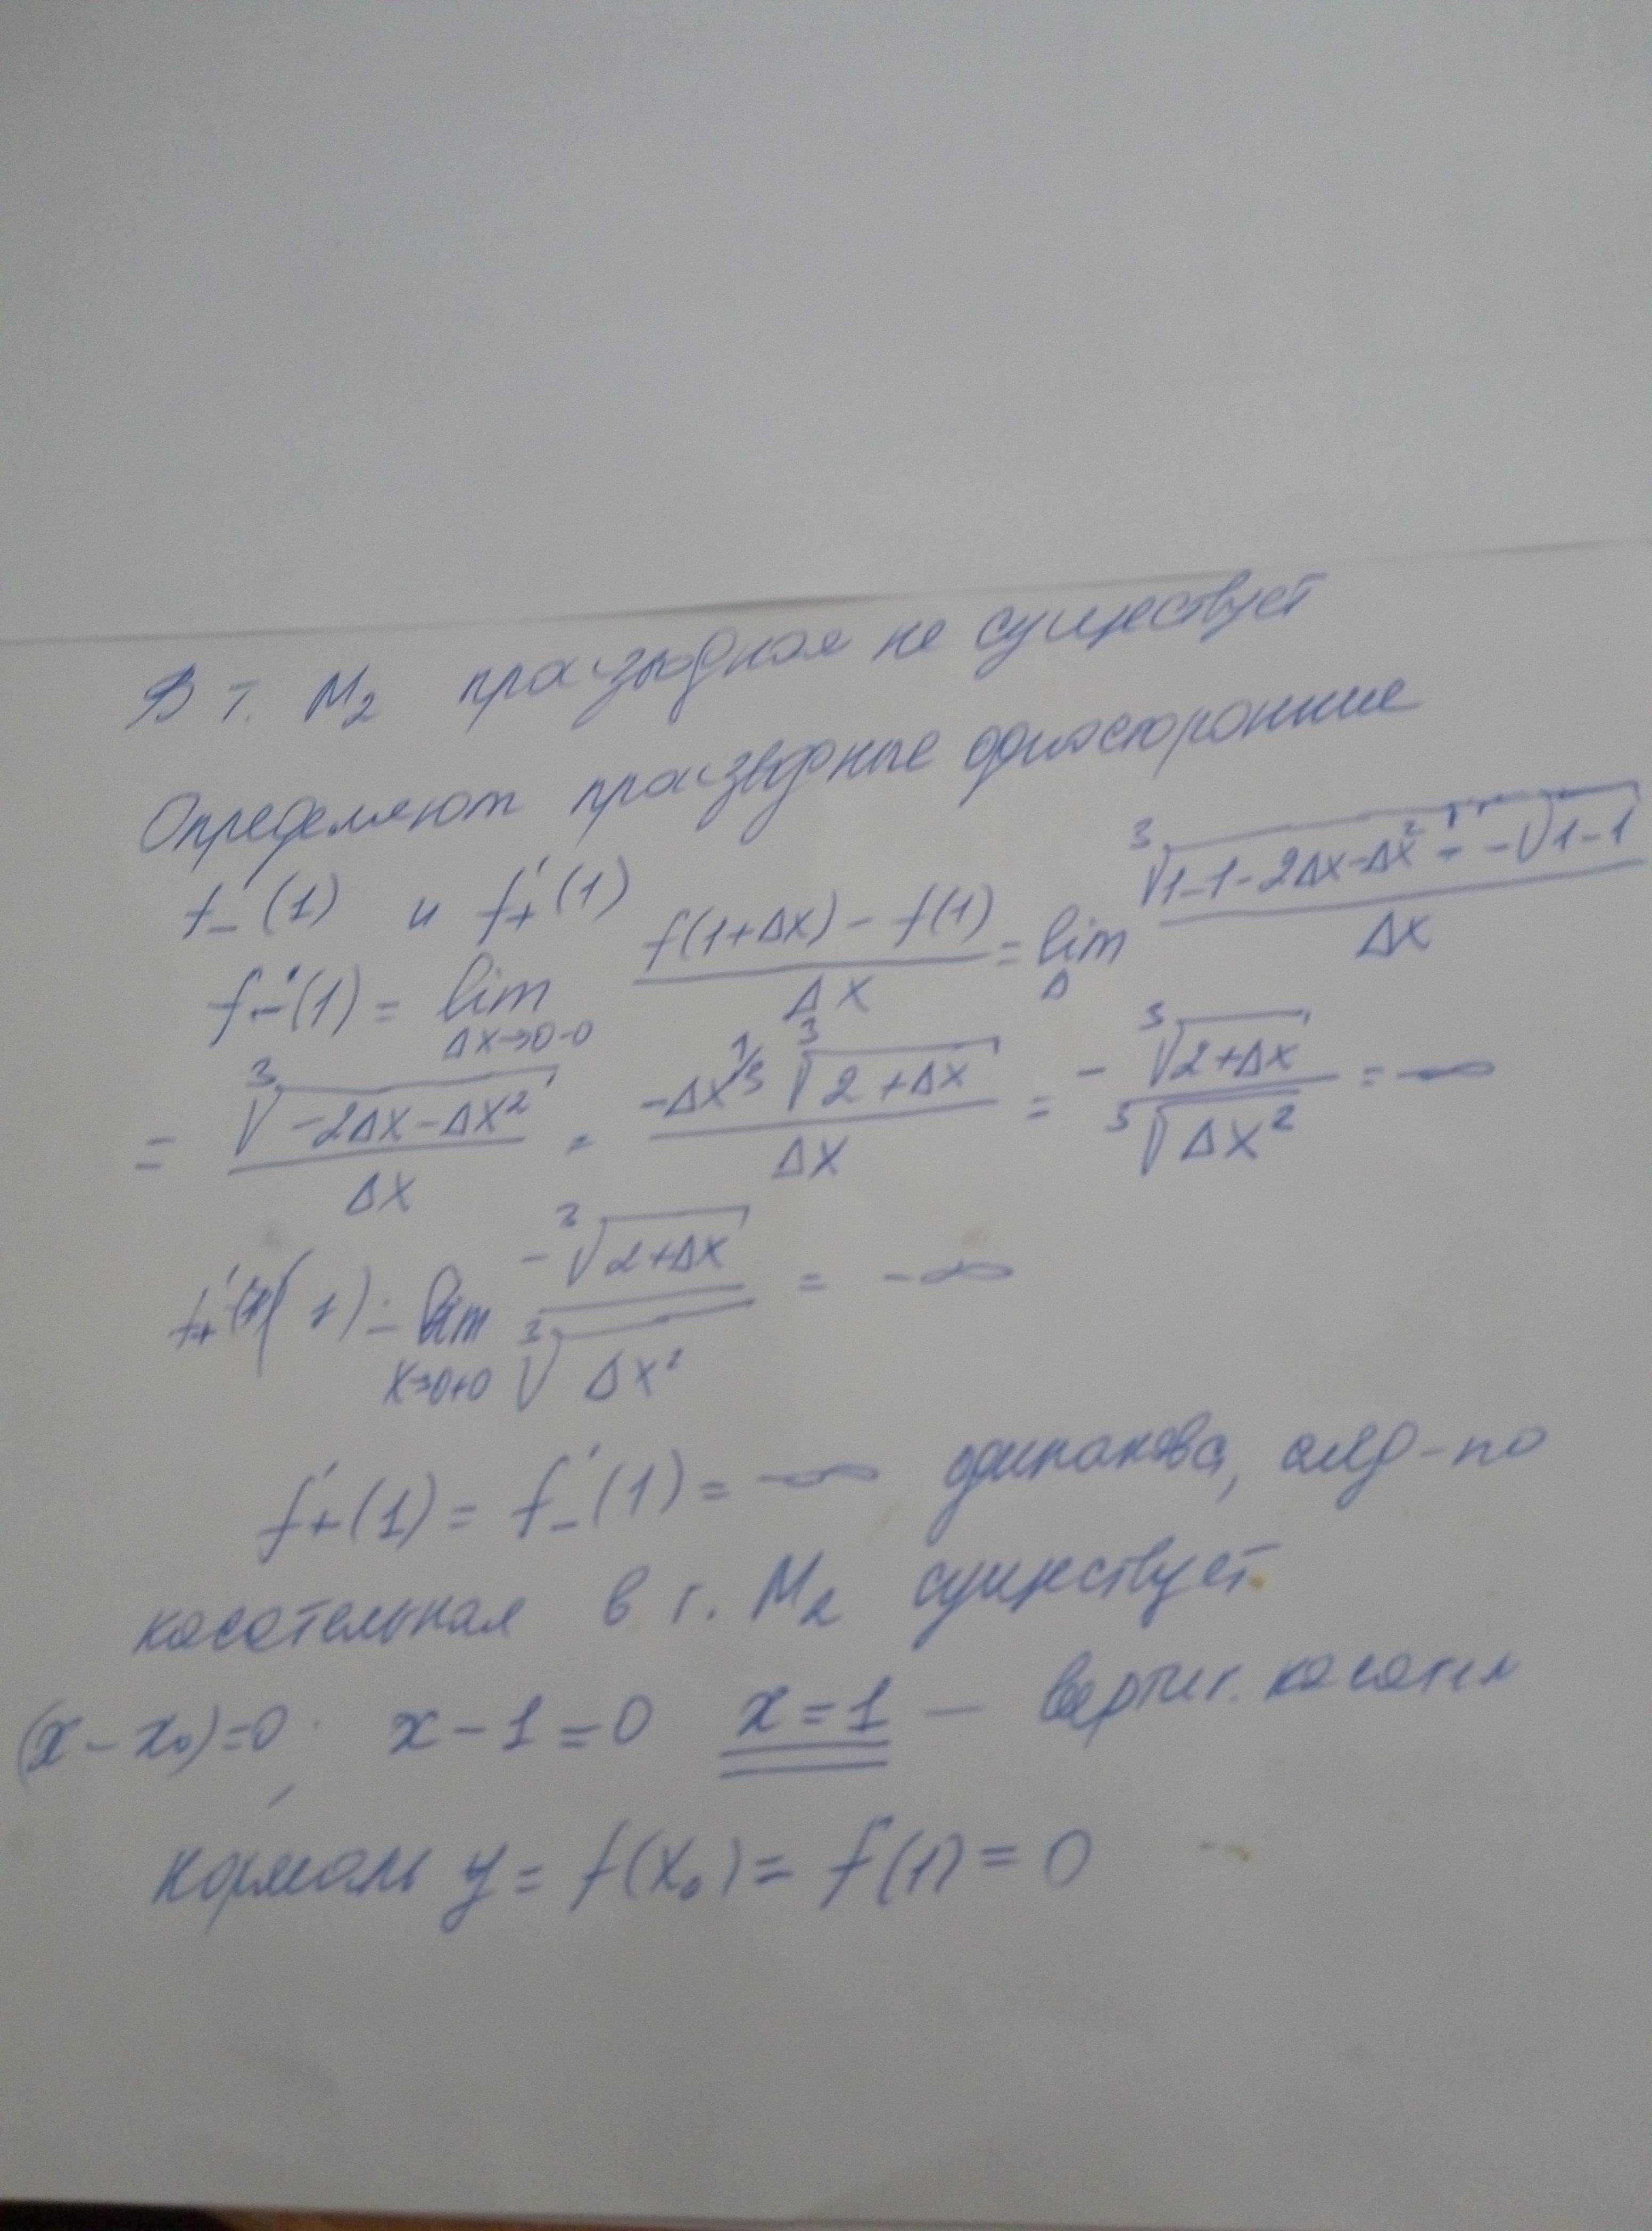 В т. M₂ произвдная не существует
Определяют произвдные односторонние
f₋'(1) и f₊'(1)
f₋'(1) = lim Δx→0-0 (f(1+Δx) - f(1))/Δx = lim Δ (∛(1-1-2Δx-Δx²) - √(1-1))/Δx
= ∛(-2Δx-Δx²)/Δx = (-Δx^(1/3) ∛(2+Δx))/Δx = -∛(2+Δx)/∛(Δx²) = -∞
f₊'(1) = lim x→0+0 -∛(2+Δx)/∛(Δx²) = -∞
f₊'(1) = f₋'(1) = -∞ одинакова, след-но
касательная в т. M₂ существует.
(x-x₀)=0. x-1=0 x=1 — вертик. касател
нормаль y = f(x₀) = f(1) = 0